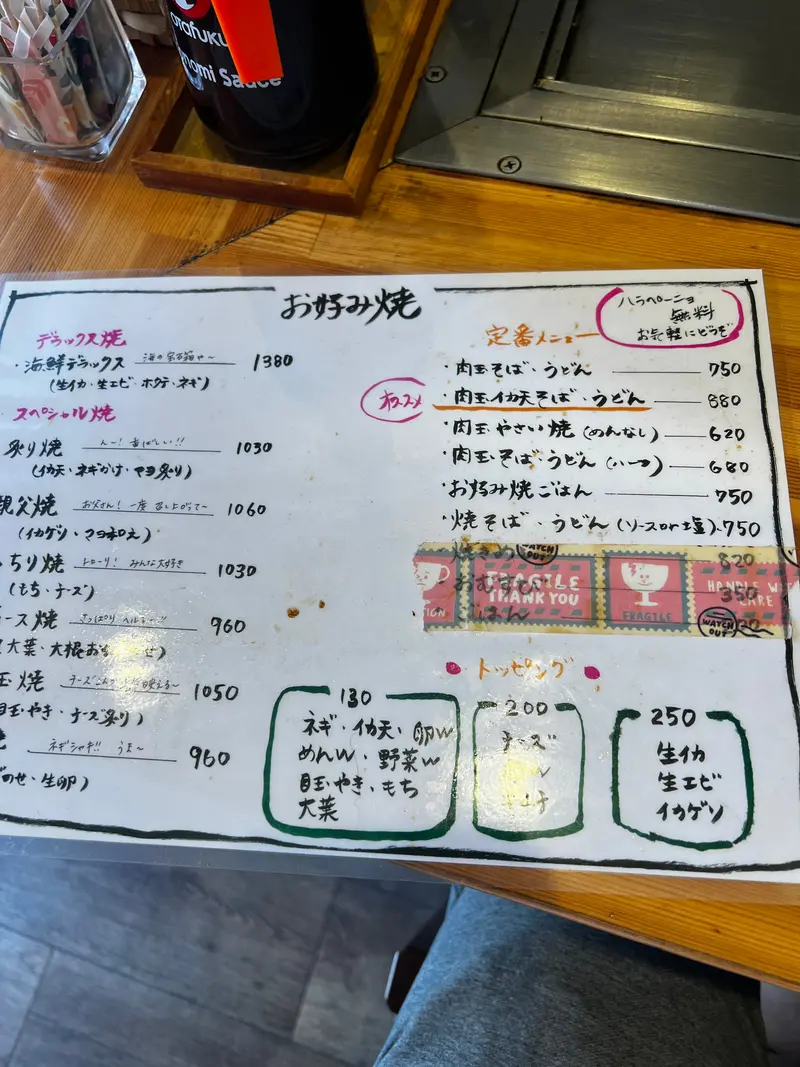 OTOFUKU
nomi Sauce
お好み焼
ハラペーニョ
無料
お気軽にどうぞ
デラックス焼
・海鮮デラックス 海の宝石箱や〜 1380
(生イカ・生エビ・ホタテ・ネギ)
スペシャル焼
炙り焼 んー!香ばしい!! 1030
(イカ天・ネギかけ・マヨ炙り)
親父焼 お父さん!一度召し上がって〜 1060
(イカゲソ・マヨ和え)
ちり焼 トローリ!みんな大好き 1030
(もち・チーズ)
ース焼 さっぱりヘルシー!! 960
大葉・大根お
玉焼 1050
目玉やき・チーズ炙り)
ネギシャキ!! うま〜 960
のせ・生卵)
定番メニュー
・肉玉そば・うどん 750
オススメ
・肉玉イカ天そば・うどん 880
・肉玉やさい焼(めんなし) 620
・肉玉そば・うどん(ハーフ) 680
・お好み焼ごはん 750
・焼そば・うどん(ソースor塩) 750
820
おむすび 350
はん
WATCH OUT
FRAGILE
THANK YOU
FRAGILE
HANDLE WIT
CARE
WATCH OUT
トッピング
130
ネギ・イカ天・卵W
めんW・野菜W
目玉やき・もち
大葉
200
チーズ
250
生イカ
生エビ
イカゲソ